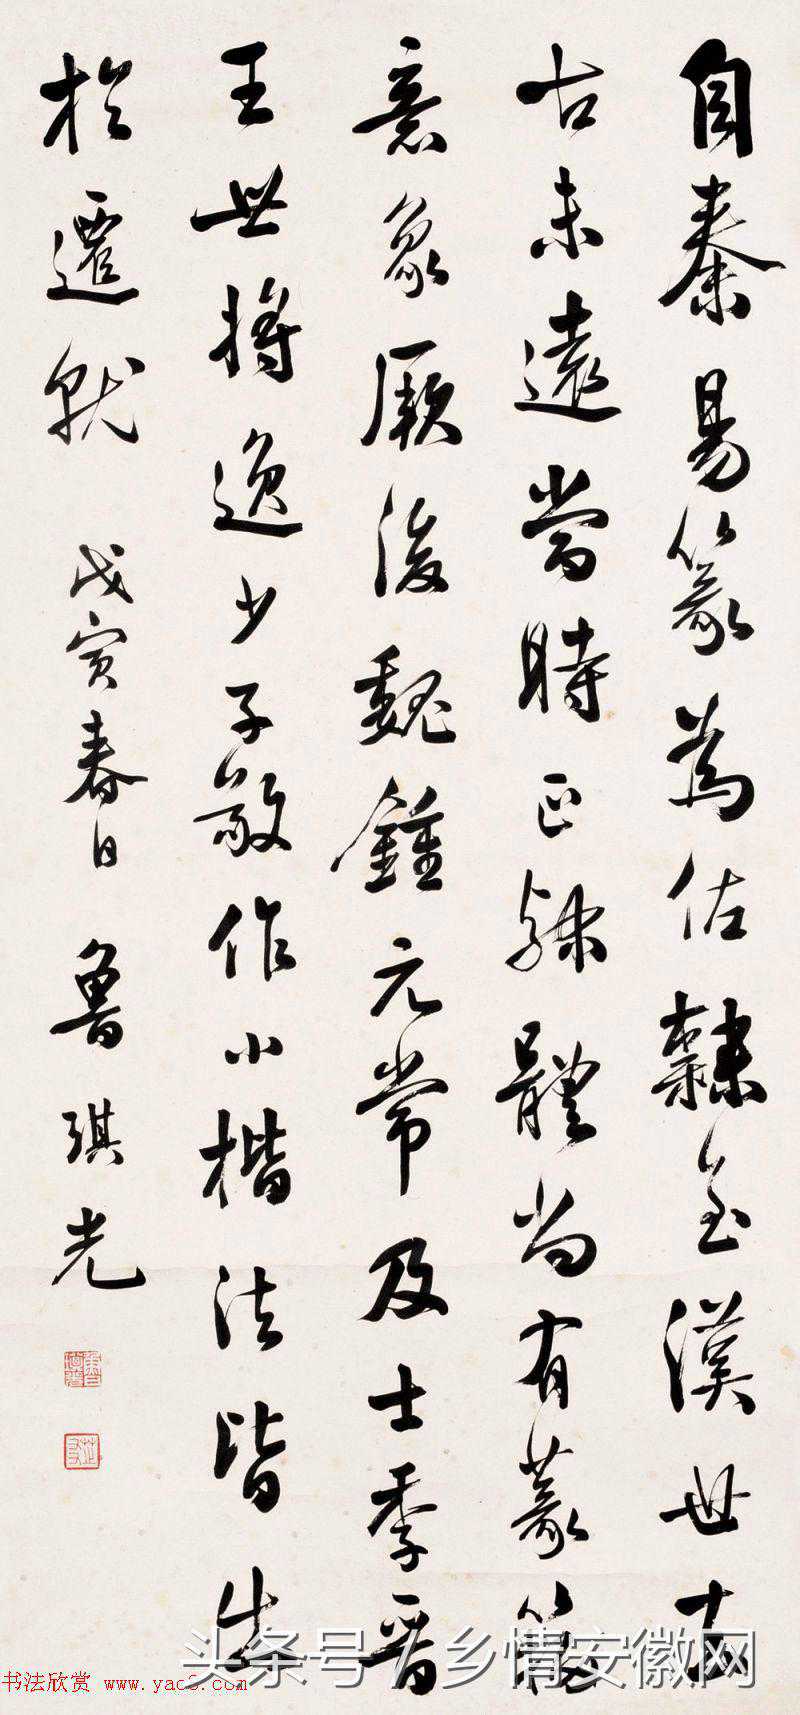 自秦易篆為佐隸至漢世去
古未遠當時正隸體尚有篆籀
意象厥後魏鍾元常及士季晉
王世將逸少子敬作小楷法皆出
於遷就 戊寅春日 魯琪光
头条号/乡情安徽网
书法欣赏 www.yac8.com